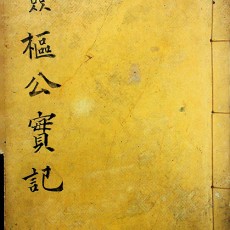 樞公實記